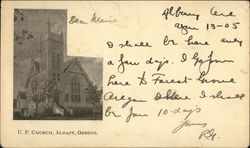 Dear Marie
Albany Ore
Apr 13-05
I shall be here only
a few days. I go from
here to Forest Grove
Oregon where I shall
be for 10-days
Yours
U. P. CHURCH, ALBANY, OREGON.